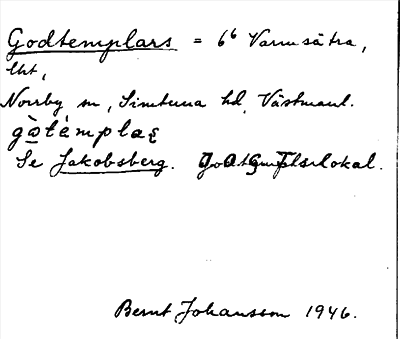 Godtemplars = 6⁶ Varmsätra,
lht,
Norrby sn, Simtuna hd, Västmanl.
gòtémplaʂ
Se Jakobsberg.
Bernt Johansson 1946.